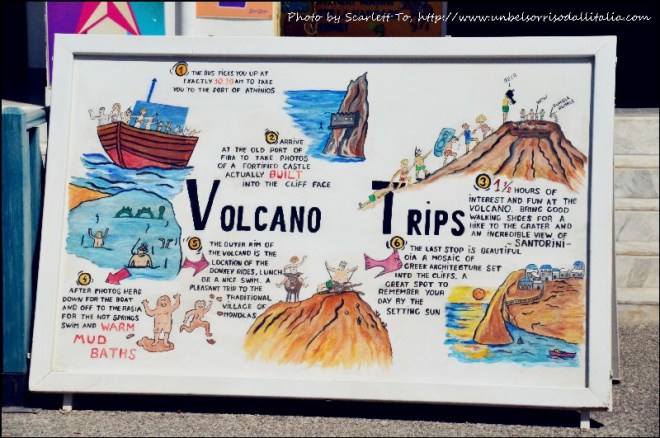 Photo by Scarlett To, http://www.unbelsorrisodallitalia.com
1 THE BUS PICKS YOU UP AT
EXACTLY 10.30 AM TO TAKE
YOU TO THE PORT OF ATHINIOS
2 ARRIVE
AT THE OLD PORT OF
FIRA TO TAKE PHOTOS
OF A FORTIFIED CASTLE
ACTUALLY BUILT
INTO THE CLIFF FACE
VOLCANO TRIPS
3 1½ HOURS OF
INTEREST AND FUN AT THE
VOLCANO. BRING GOOD
WALKING SHOES FOR A
HIKE TO THE CRATER AND
AN INCREDIBLE VIEW OF
-SANTORINI-
4
AFTER PHOTOS HERD
DOWN FOR THE BOAT
AND OFF TO THE
FOR THE HOT SPRINGS
SWIM AND WARM
MUD
BATHS
5 THE OUTER RIM OF
THE VOLCANO IS THE
LOCATION OF THE
DONKEY RIDES, LUNCH
OR A NICE SWIM. A
PLEASANT TRIP TO THE
TRADITIONAL
VILLAGE OF
6
THE LAST STOP IS BEAUTIFUL
OIA A MOSAIC OF
GREEK ARCHITECTURE SET
INTO THE CLIFFS. A
GREAT SPOT TO
REMEMBER YOUR
DAY BY THE
SETTING SUN